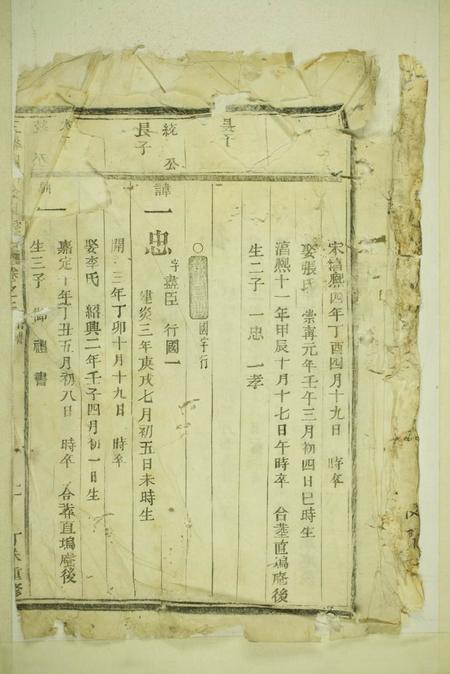 長子
宋淳熙四年丁酉四月十九日 時卒
娶張氏 崇寧元年壬午三月初四日巳時生
淳熙十一年甲辰十月十七日午時卒 合塟直塢庵後
生二子 一忠 一孝
國字行
統公
長子
諱一忠 字盡臣 行國一
建炎三年庚戌七月初五日未時生
開 三年丁卯十月十九日 時卒
娶李氏 紹興二年壬子四月初一日生
嘉定十年丁丑五月初八日 時卒 合塟直塢庵後
生三子 師 禮 書
丁未重修